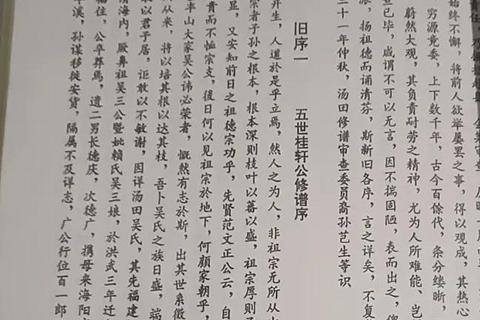 始终不懈，将前人欲举屡罢之事，得以观成，其热心
穷源竟委，上下数千年，古今百余代，条分缕晰，
蔚然大观，其负责耐劳之精神，尤为人所难能，岂
查已毕，咸谓不可以无言，因不揣固陋，表而出之，俾
派，扬祖德而诵清芬，斯新旧各序，言之详矣，不复
三十一年仲秋，汤田修谱审查委员裔孙艺生等识
旧序一 五世桂轩公修谱序
并生，人道於是乎立焉，然人之为人，非祖宗无所从
宗者子孙之根本，根本深则枝叶以蕃以盛，祖宗厚则子
显，又安知前日之祖德宗功乎，先贤范文正公云，自
贵而不恤宗支，後日何以见祖宗於地下，何颜家朝乎，
丰山大家吴公讳必荣者，慨然有志於斯，出其世系徵
从来，将以培其根以达其枝，吾卜吴氏之族日盛，端
以君子居，讵敢以不敏谢，因详汤田吴氏，其先福建
清海内，厥鼻祖吴三公暨妣赖氏吴三娘，於洪武三年迁
住，公卒葬焉，遗二男长德庆，次德广，携母来海阳
溪，孙谋移徙安黄，隔属不及详志，广公行位百一郎